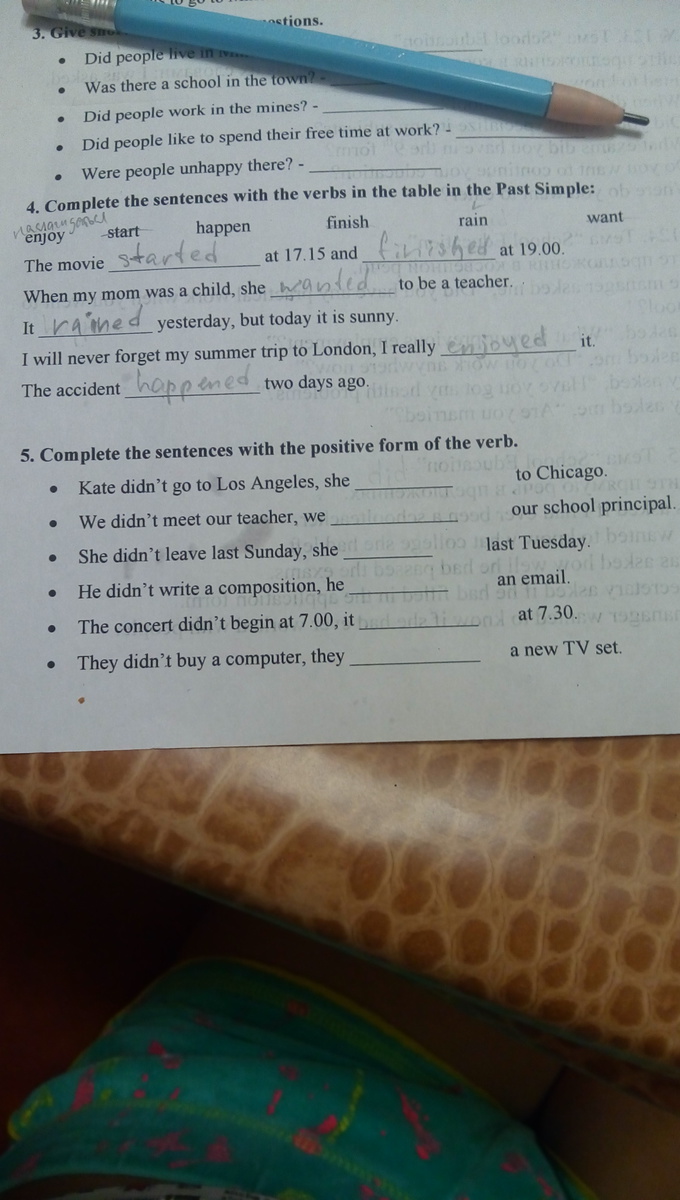 stions.
3. Give
• Did people live in
• Was there a school in the town? - ________
• Did people work in the mines? - ________
• Did people like to spend their free time at work? - ________
• Were people unhappy there? - ________
4. Complete the sentences with the verbs in the table in the Past Simple:
enjoy start happen finish rain want
The movie started at 17.15 and finished at 19.00.
When my mom was a child, she wanted to be a teacher.
It rained yesterday, but today it is sunny.
I will never forget my summer trip to London, I really enjoyed it.
The accident happened two days ago.
5. Complete the sentences with the positive form of the verb.
• Kate didn't go to Los Angeles, she ________ to Chicago.
• We didn't meet our teacher, we ________ our school principal.
• She didn't leave last Sunday, she ________ last Tuesday.
• He didn't write a composition, he ________ an email.
• The concert didn't begin at 7.00, it ________ at 7.30.
• They didn't buy a computer, they ________ a new TV set.